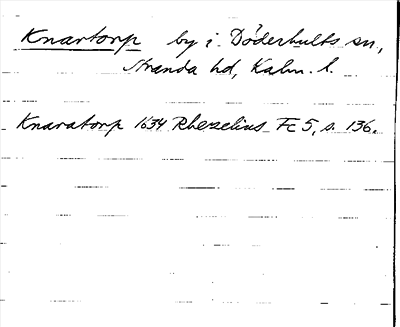 Knartorp by i Döderhults sn,
Stranda hd, Kalm. l.
Knaratorp 1634 Rhezelius Fc 5, s. 136.